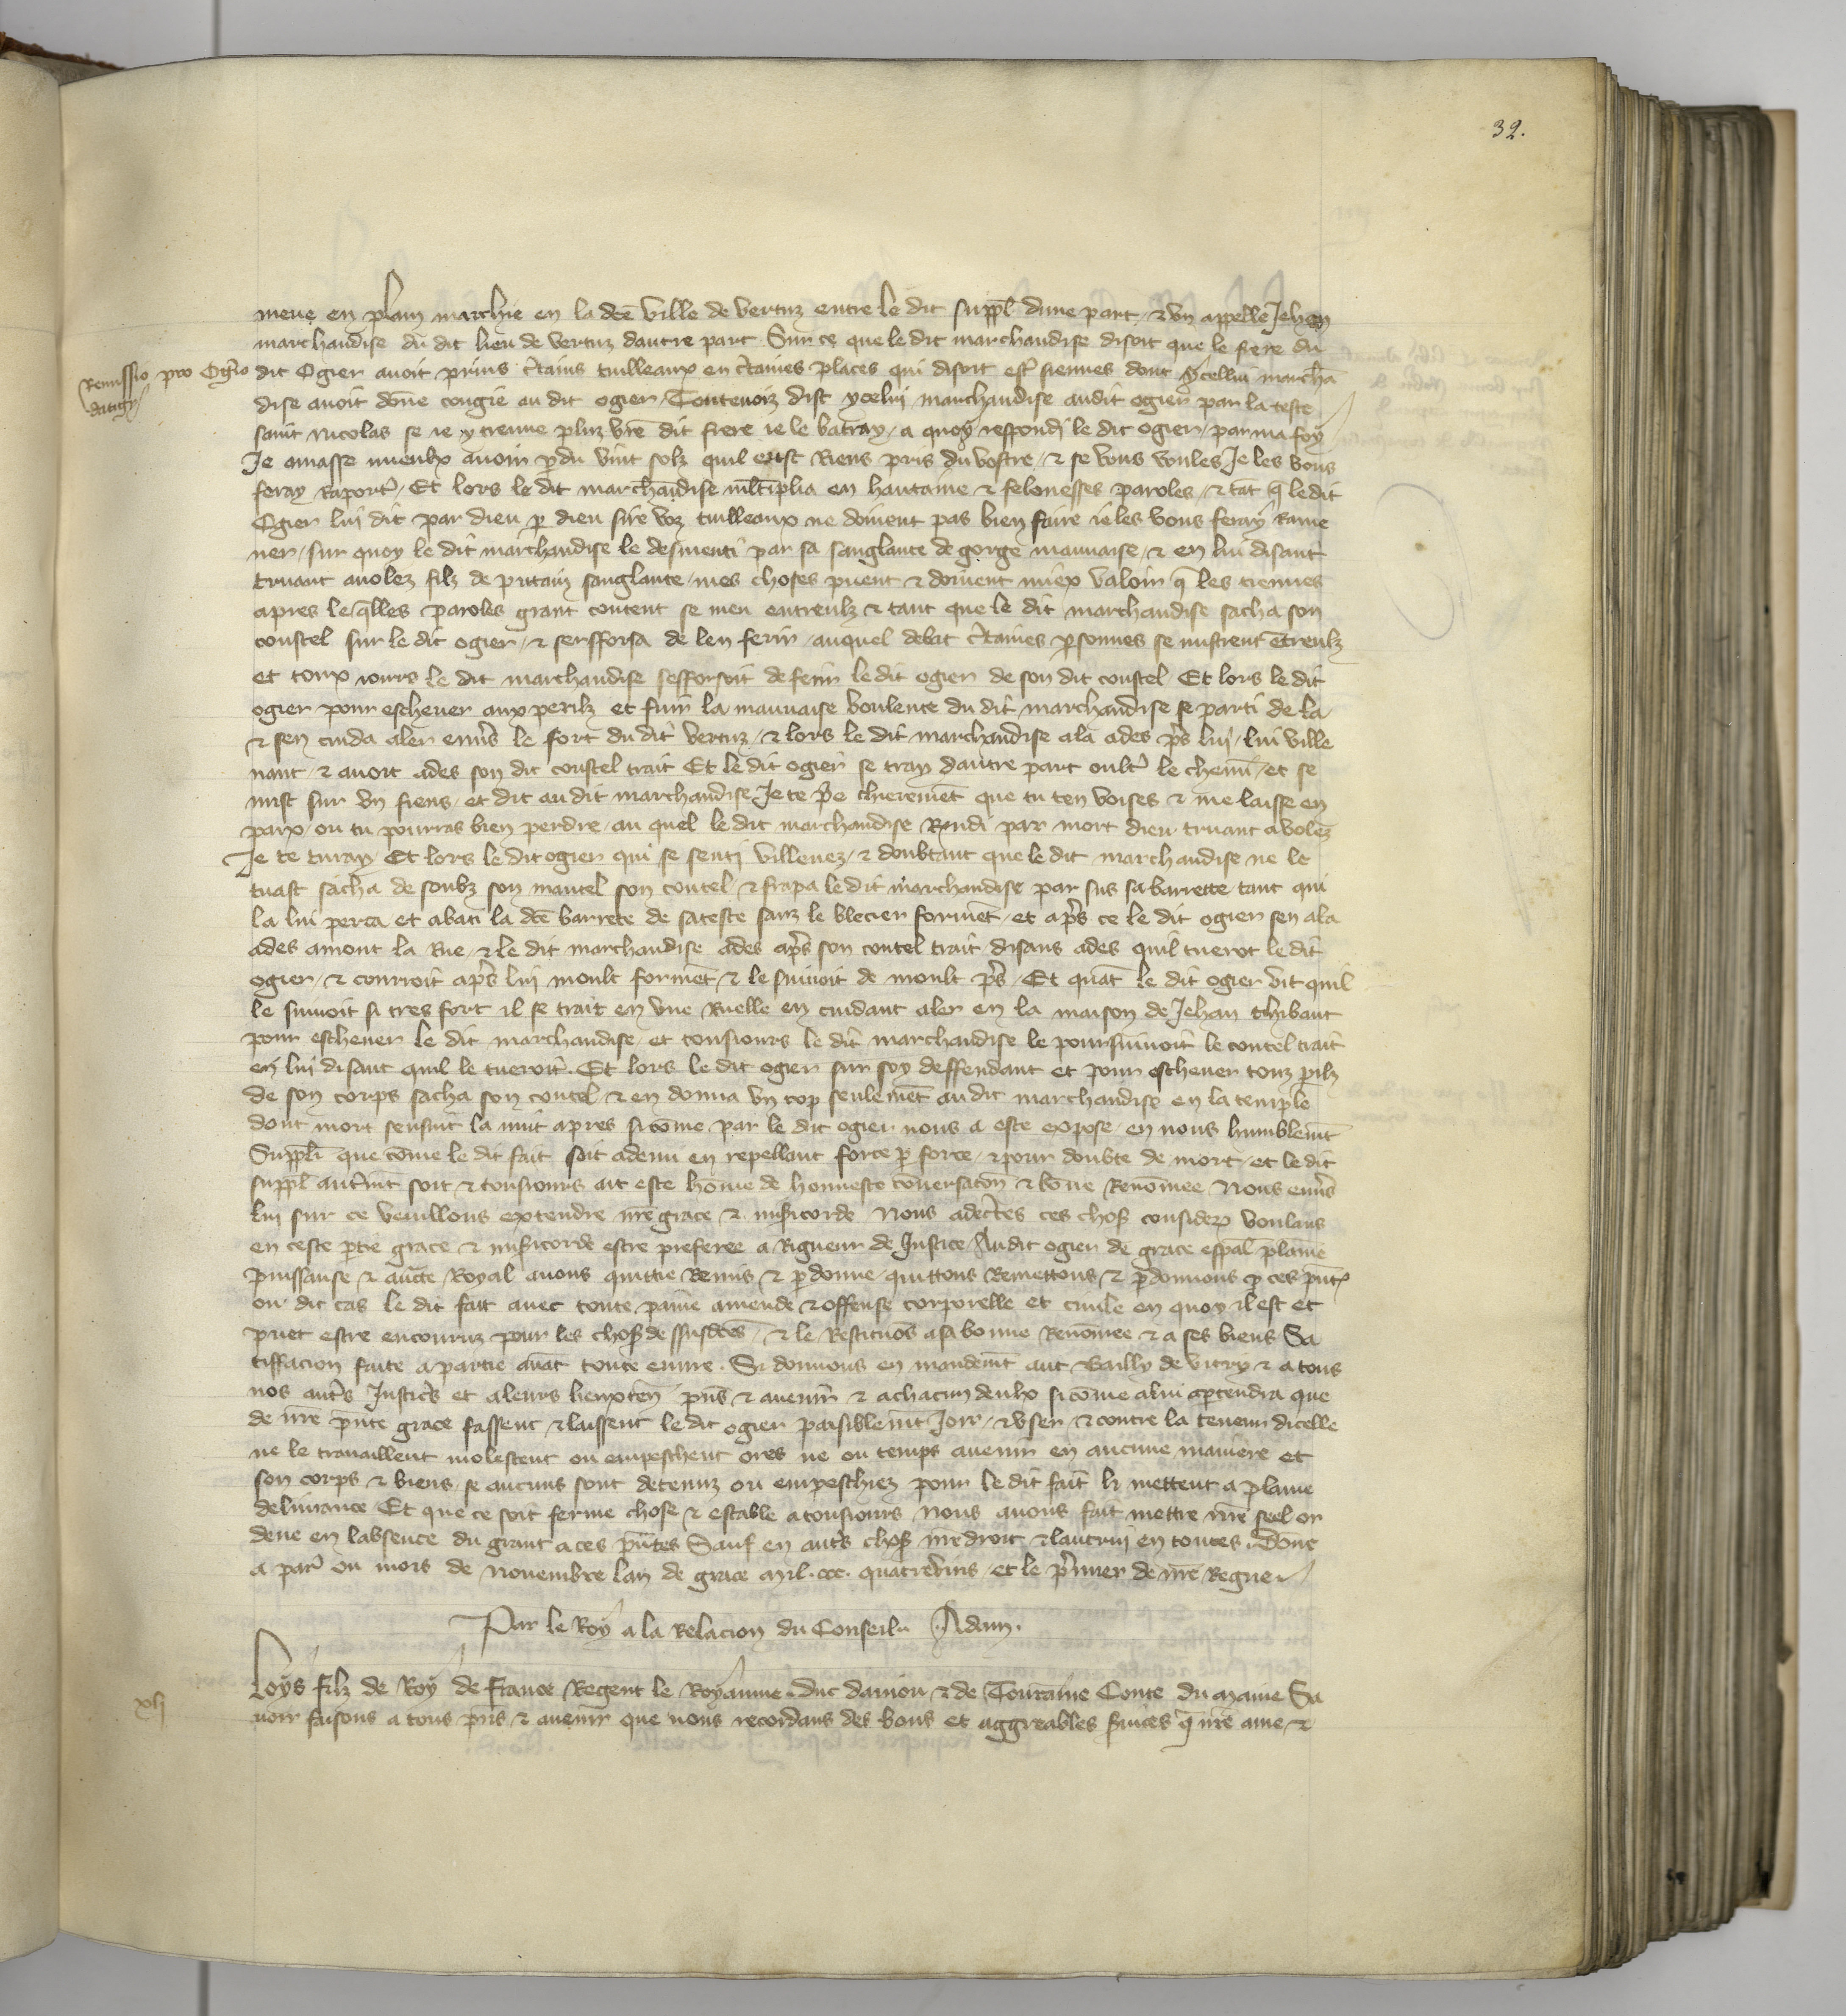 32.
meue en plain marchie en la dcē ville de vertuz entre le dit suppl̄ dune part, & vn appelle Jehan
marchandise du dit lieu de vertuz dautre part Sur ce que le dit marchandise disoit que le frere du
Remissio pro Og̃io
dit Ogier auoit prins c̃tains tuilleaux en c̃taines places qui disoit est̃ siennes dont ycellui marchā
dise auoit dōne congie au dit ogier / Toutenoiz dist ycelui marchandise audit ogier par la teste
saint Nicolas se ie y treuue pluz vr̄e dit frere ie le batray / a quoy respondi le dit ogier / par ma foy
Je amasse mieulx auoir p̱du vint solz quil eust Riens pris du vostre / & se vous voules Je les vous
feray raport̃ / Et lors le dit marchandise ml̄tiplia en hautaine & felonesses paroles / & tāt q̄ le dit
Ogier lui dit par dieu p̱ dieu sire voz tuilleaux ne doiuent pas bien faire ie les vous feray rame
ner / sur quoy le dit marchandise le desmenti par sa sanglante de gorge mauuaise / & en lui disant
truant auolez filz de putain sanglante / mes choses puent & doiuent miex valoir q̄ les tiennes
apres lesq̄lles paroles grant content se meu entreulz & tant que le dit marchandise sacha son
coustel sur le dit ogier / & sesfforsa de len ferir / auquel debat c̃taines p̱sonnes se mistrent ētreulz
et toux iours le dit marchandise sefforsoit de ferir le dit ogier de son dit coustel Et lors le dit
ogier pour escheuer aux perilz et fuir la mauuaise voulente du dit marchandise se parti de la
& sen cuida aler enũs le fort du dit vertuz / & lors le dit marchandise ala ades p̃s lui / lui ville
nant / & auoit ades son dit coustel trait Et le dit ogier se tray dautre part oult̃ le chemī / et se
mist sur vn fiens / et dit au dit marchandise Je te p̃e chieremēt que tu ten voises & me laisse en
paix / ou tu pourras bien perdre / au quel le dit marchandise Rendi par mort dieu truant avolez
Je te turay / Et lors le dit ogier qui se senti villenez / & doubtant que le dit marchandise ne le
tuast sacha de soubz son mantel son coutel & frapa le dit marchandise par sus sa barrette / tant qui
la lui perca et abati la dcē barrete de sa teste sanz le blecier formēt / et ap̃s ce le dit ogier sen ala
ades amont la Rue / & le dit marchandise ades ap̃s son coutel trait disans ades quil tuerot le dit
ogier / & courroit ap̃s lui moult formēt / & le suiuoit de moult p̃s / Et quāt le dit ogier vit quil
le suiuoit si tres fort il se trait en vne Ruelle en cuidant aler en la maison de Jehan thibaut
pour escheuer le dit marchandise / et tousiours le dit marchandise le poursuiuoit le coutel trait
en lui disant quil le tueroit. Et lors le dit ogier sur soy deffendant et pour escheuer touz p̱ilz
de son corps sacha son coutel / & en donna vn cop seulemēt au dit marchandise en la temple
dont mort sensuit la nuit apres si cōme par le dit ogier nous a este expose / en nous humblemt̄
Suppl̄i que cōme le dit fait soit aduenu en repellant force p̱ force / & pour doubte de mort / et le dit
suppl̄ autr̃mt̄ soit & tousiours ait este hōme de honneste cōuersatōn & bōne Renōmee Nous enũs
lui sur ce veuillons extendre nr̄e grace & mis̃icorde Nous adec̃tes ces choß considez̃ voulans
en ceste p̱tie grace & mis̃icorde estre preferee a Rigueur de Justice Audit ogier de grace esp̄al plaine
puissanse & aucte Royal auons quittie Remis & p̱donne / quittons Remettons & p̱donnons p̱ ces p̄ntes
ou dit cas le dit fait auec toute paine amende & offense corporelle et ciuile en quoy il est et
puet estre encouruz pour les choß dessusdc̄es / & le Restituōs a sa bonne Renōmee & a ses biens Sa
tiffacion faite a partie auāt toute euure. Si donnons en mandemt̄ aut Bailly de vitry & a tous
nos aut̃s Justic̃s et a leurs lieuxten̄ p̄ns & auenir & a chacun deulx si cōme a lui ap̱tendra que
de nr̄e p̄nte grace facent & laissent le dit ogier paisiblemt̄ Joir / & vser & contre la teneur dicelle
ne le trauaillent molestent ou empeschent ores ne ou temps auenir en aucune maniere et
son corps & biens / se aucuns sont detenuz ou empeschiez pour le dit fait li mettent a plaine
deliurance Et que ce soit ferme chose & estable a tousiours Nous auons fait mettre nr̄e seel or
dene en labsence du grant a ces p̄ntes Sauf en aut̃s choß nr̄e droit & lautrui en toutes. Dōne
a par̃ ou mois de Nouembre lan de grace mil. ccc. quatrevins / et le p̃mier de nr̄e Regne
Par le Roy a la Relacion du Conseil. Adam.
xlj
Loys filz de Roy de france Regent le Royaume. duc daniou & de Touraine Conte du maine Sa
uoir faisons a tous p̄ns & auenir que nous recordans des bons et aggreables ßuices q̄ nr̄e ame &